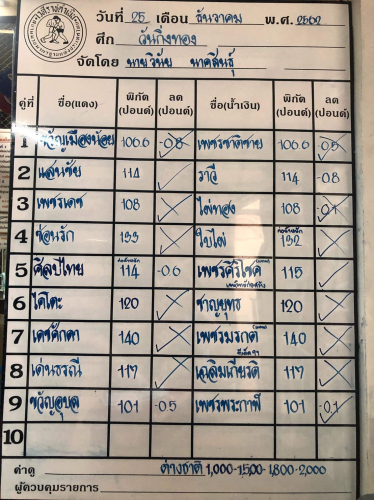 วันที่ 25 เดือน ธันวาคม พ.ศ. 2562
ศึก วันกิ่งทอง
จัดโดย นายวินัย นาคสินธุ์
คู่ที่ ชื่อ(แดง) พิกัด (ปอนด์) ลด (ปอนด์) ชื่อ(น้ำเงิน) พิกัด (ปอนด์) ลด (ปอนด์)
1 ขวัญเมืองน้อย 106.6 -0.8 เพชรชาติชาย 106.6 -0.5
2 แสนชัย 114 ราวี 114 -0.8
3 เพชรเดช 108 ไผ่ทอง 108 -0.1
4 ซ่อนรัก 133 ใบไผ่ 132
5 ศิลปไทย 114 -0.6 เพชรศิริโชค 115
6 โคโตะ 120 ชาญยุทธ 120
7 เดชศักดา 140 เพชรมรกต 140
8 เด่นธรณี 117 เฉลิมเกียรติ 117
9 ขวัญอุบล 101 -0.5 เพชรพระกาฬ 101 -0.1
10
ค่าดู ต่างชาติ 1,000-1,500-1,800-2,000
ผู้ควบคุมรายการ